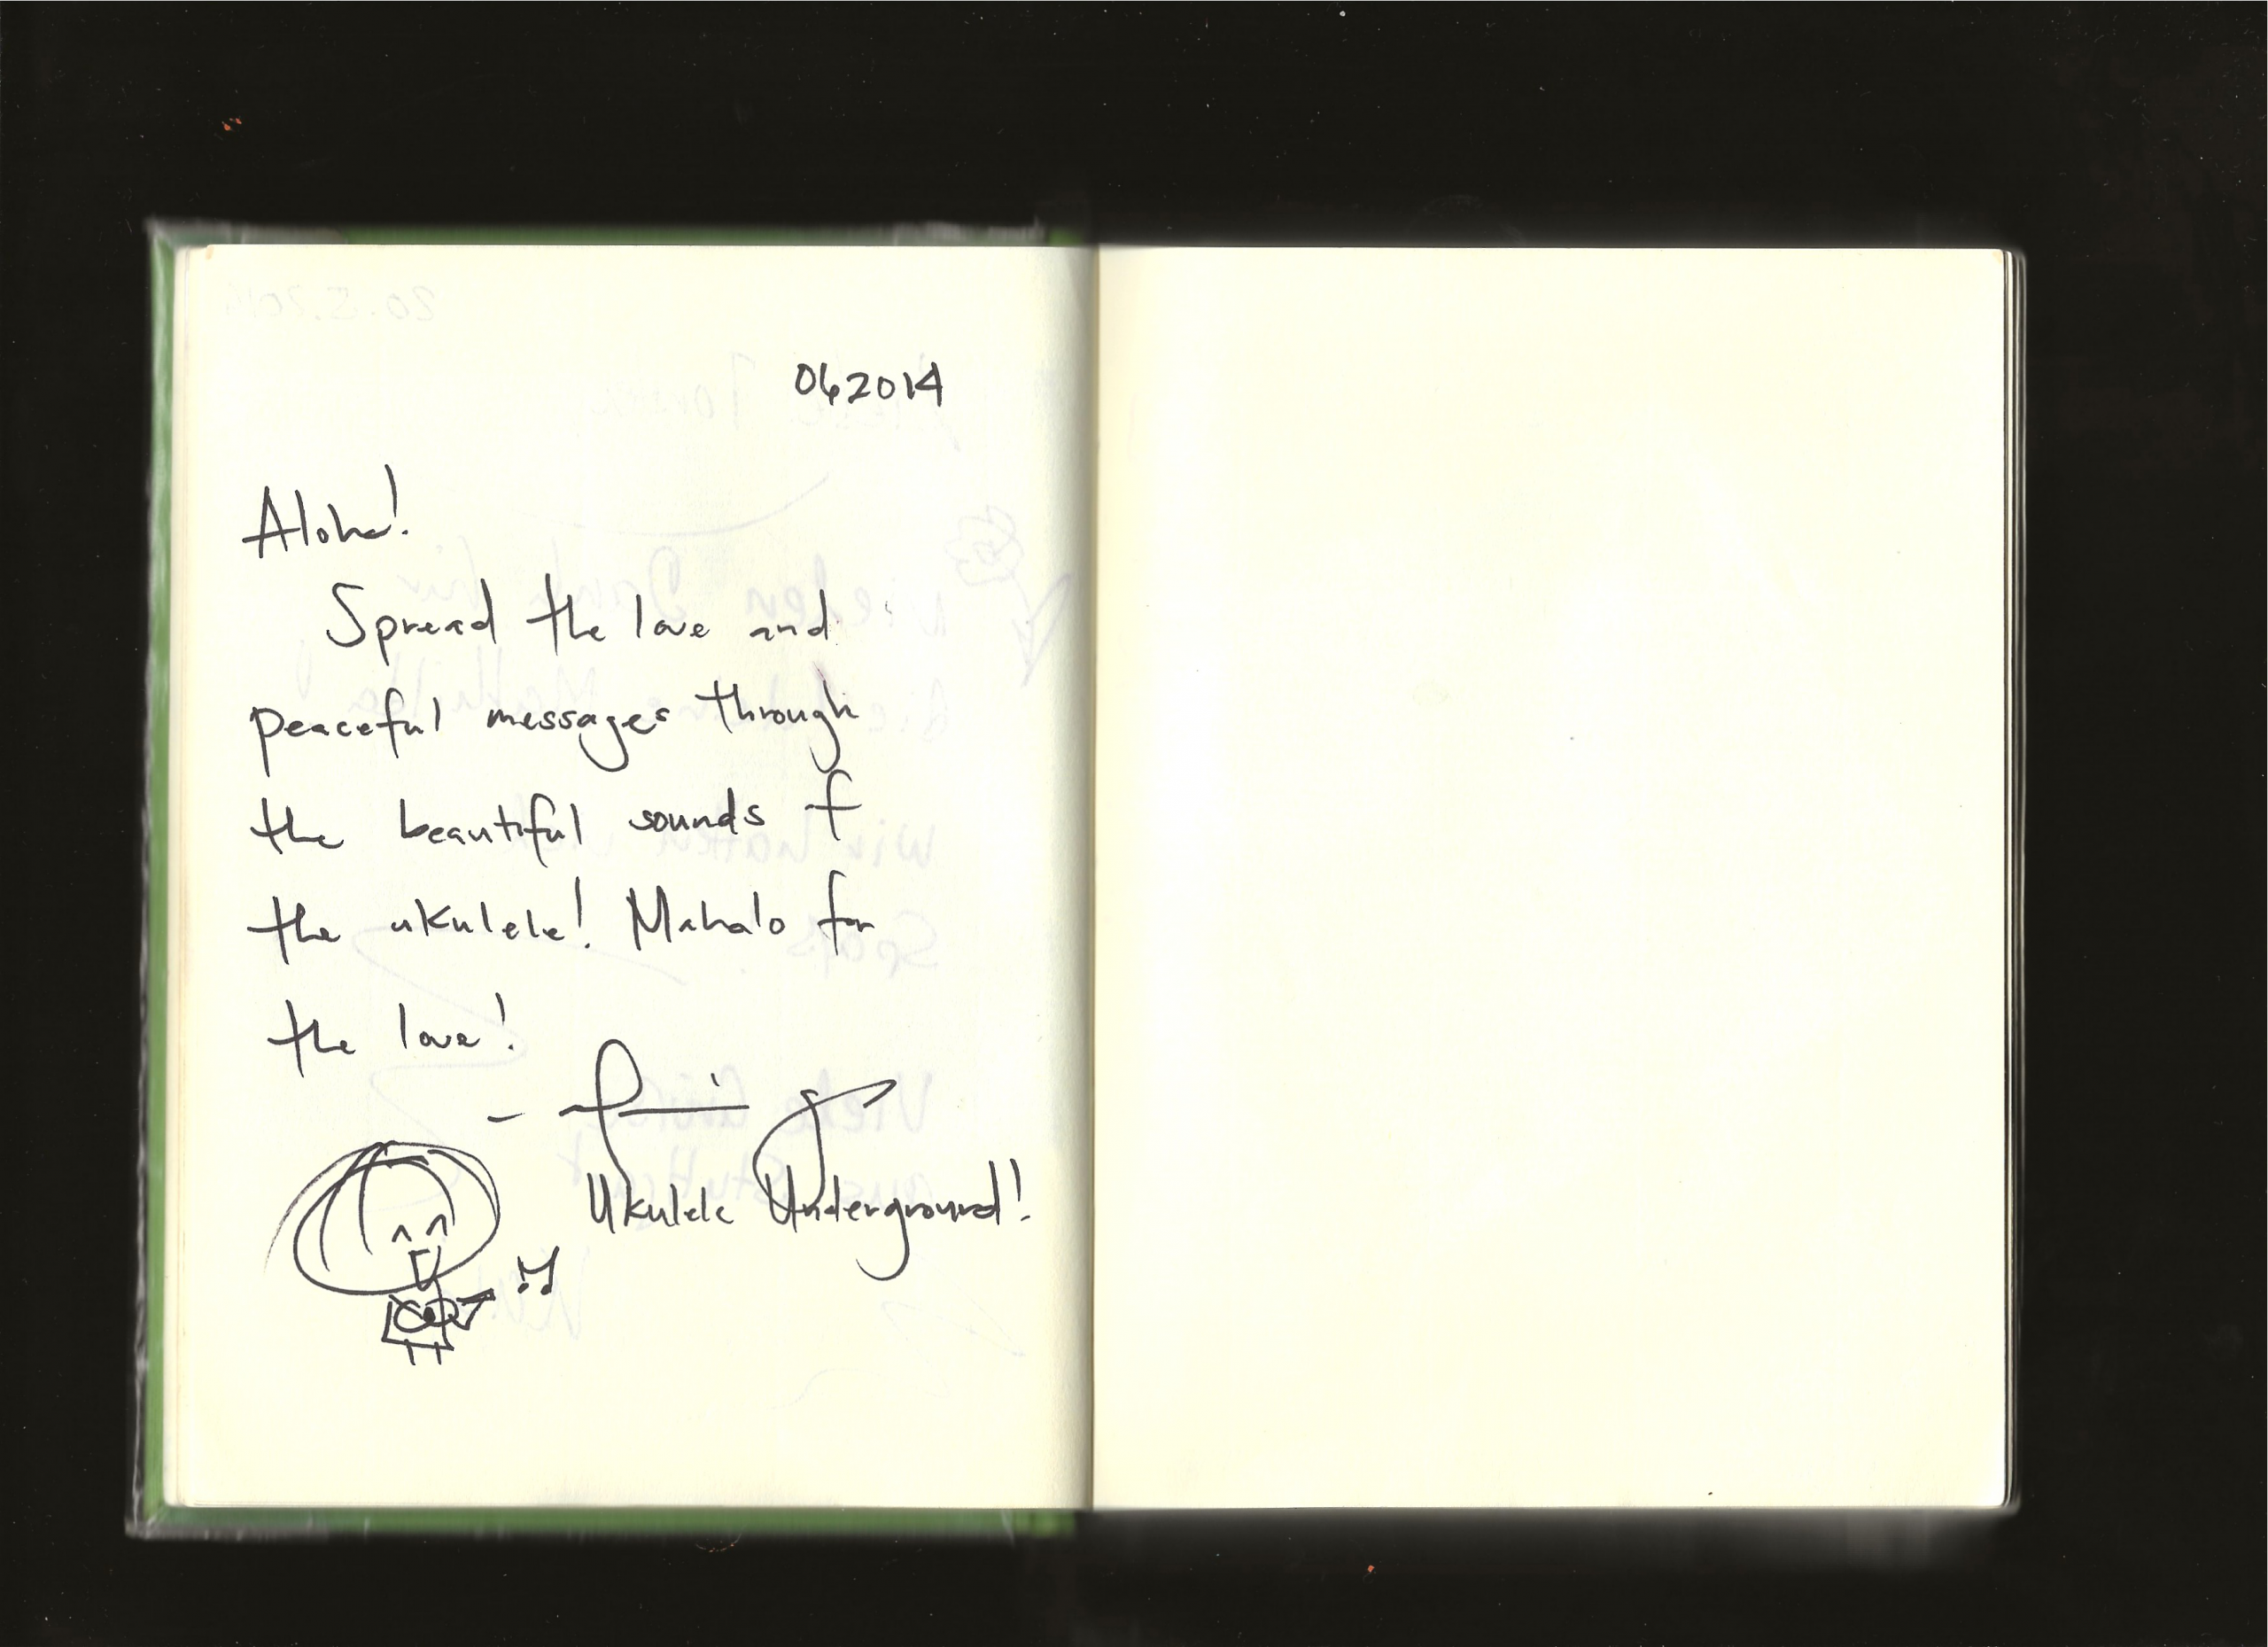 062014
Aloha!
Spread the love and
peaceful messages through
the beautiful sounds of
the ukulele! Mahalo for
the love!
Ukulele Underground!